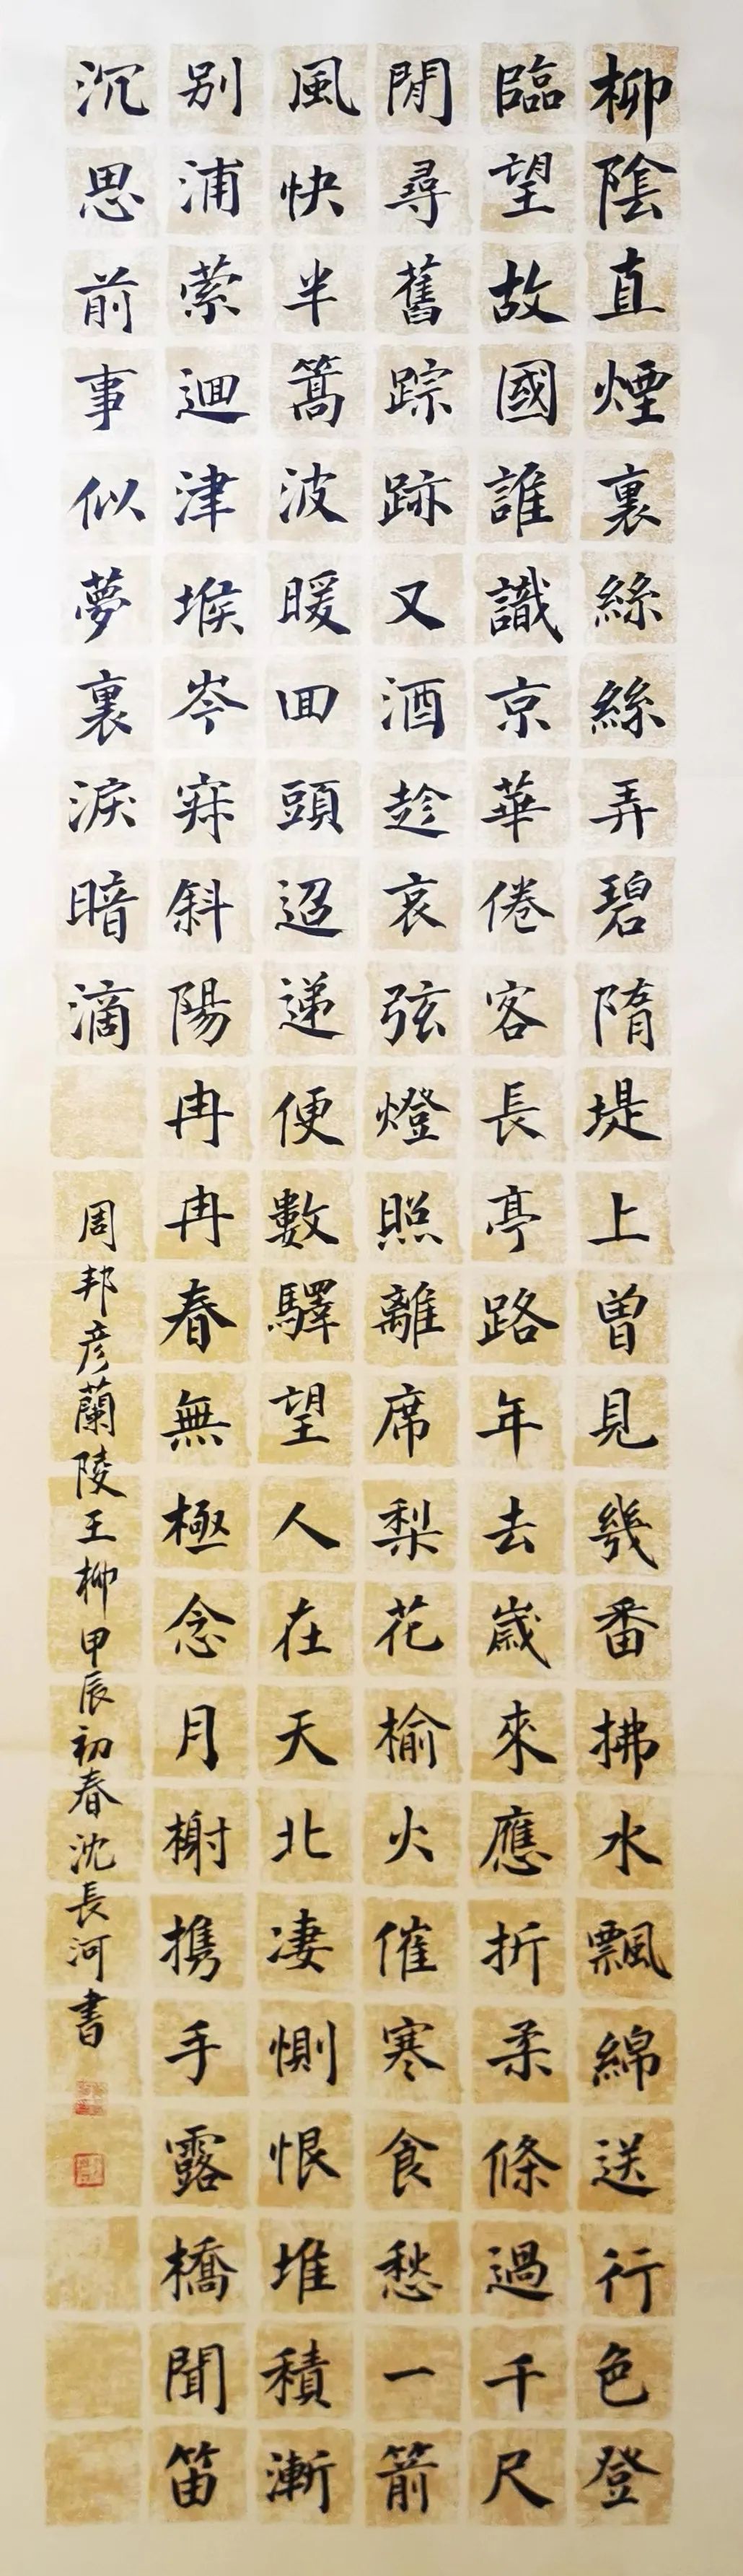 柳陰直煙裏絲絲弄碧隋堤上曾見幾番拂水飄綿送行色登
臨望故國誰識京華倦客長亭路年去歲來應折柔條過千尺
閒尋舊踪跡又酒趁哀弦燈照離席梨花榆火催寒食愁一箭
風快半篙波暖回頭迢递便數驛望人在天北凄惻恨堆積漸
別浦縈迴津堠岑寂斜陽冉冉春無極念月榭携手露橋聞笛
沉思前事似夢裏淚暗滴
周邦彦蘭陵王柳甲辰初春沈長河書